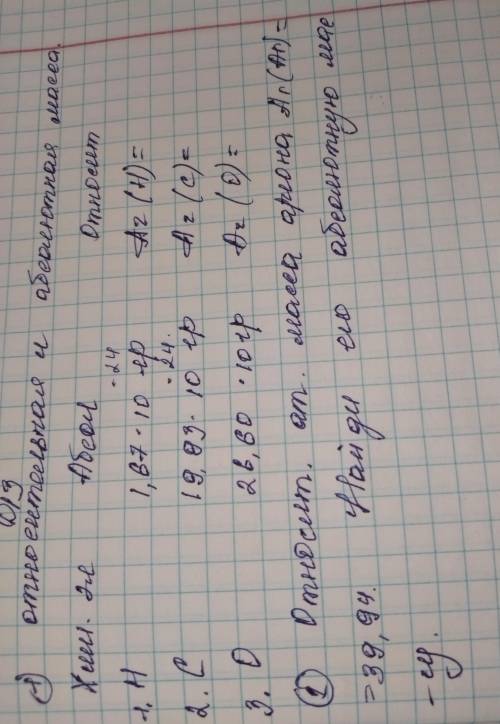 Д/З
① относительная и абсолютная масса.
Хим. Эл Абсол Относит
1. H 1,67 · 10⁻²⁴ гр Ar (H) =
2. C 19,93 · 10⁻²⁴ гр Ar (C) =
3. O 26,60 · 10 гр Ar (O) =
② Относит. ат. масса аргона Ar (Ar) =
= 39,94. Найди его абсолютную мас
- су.